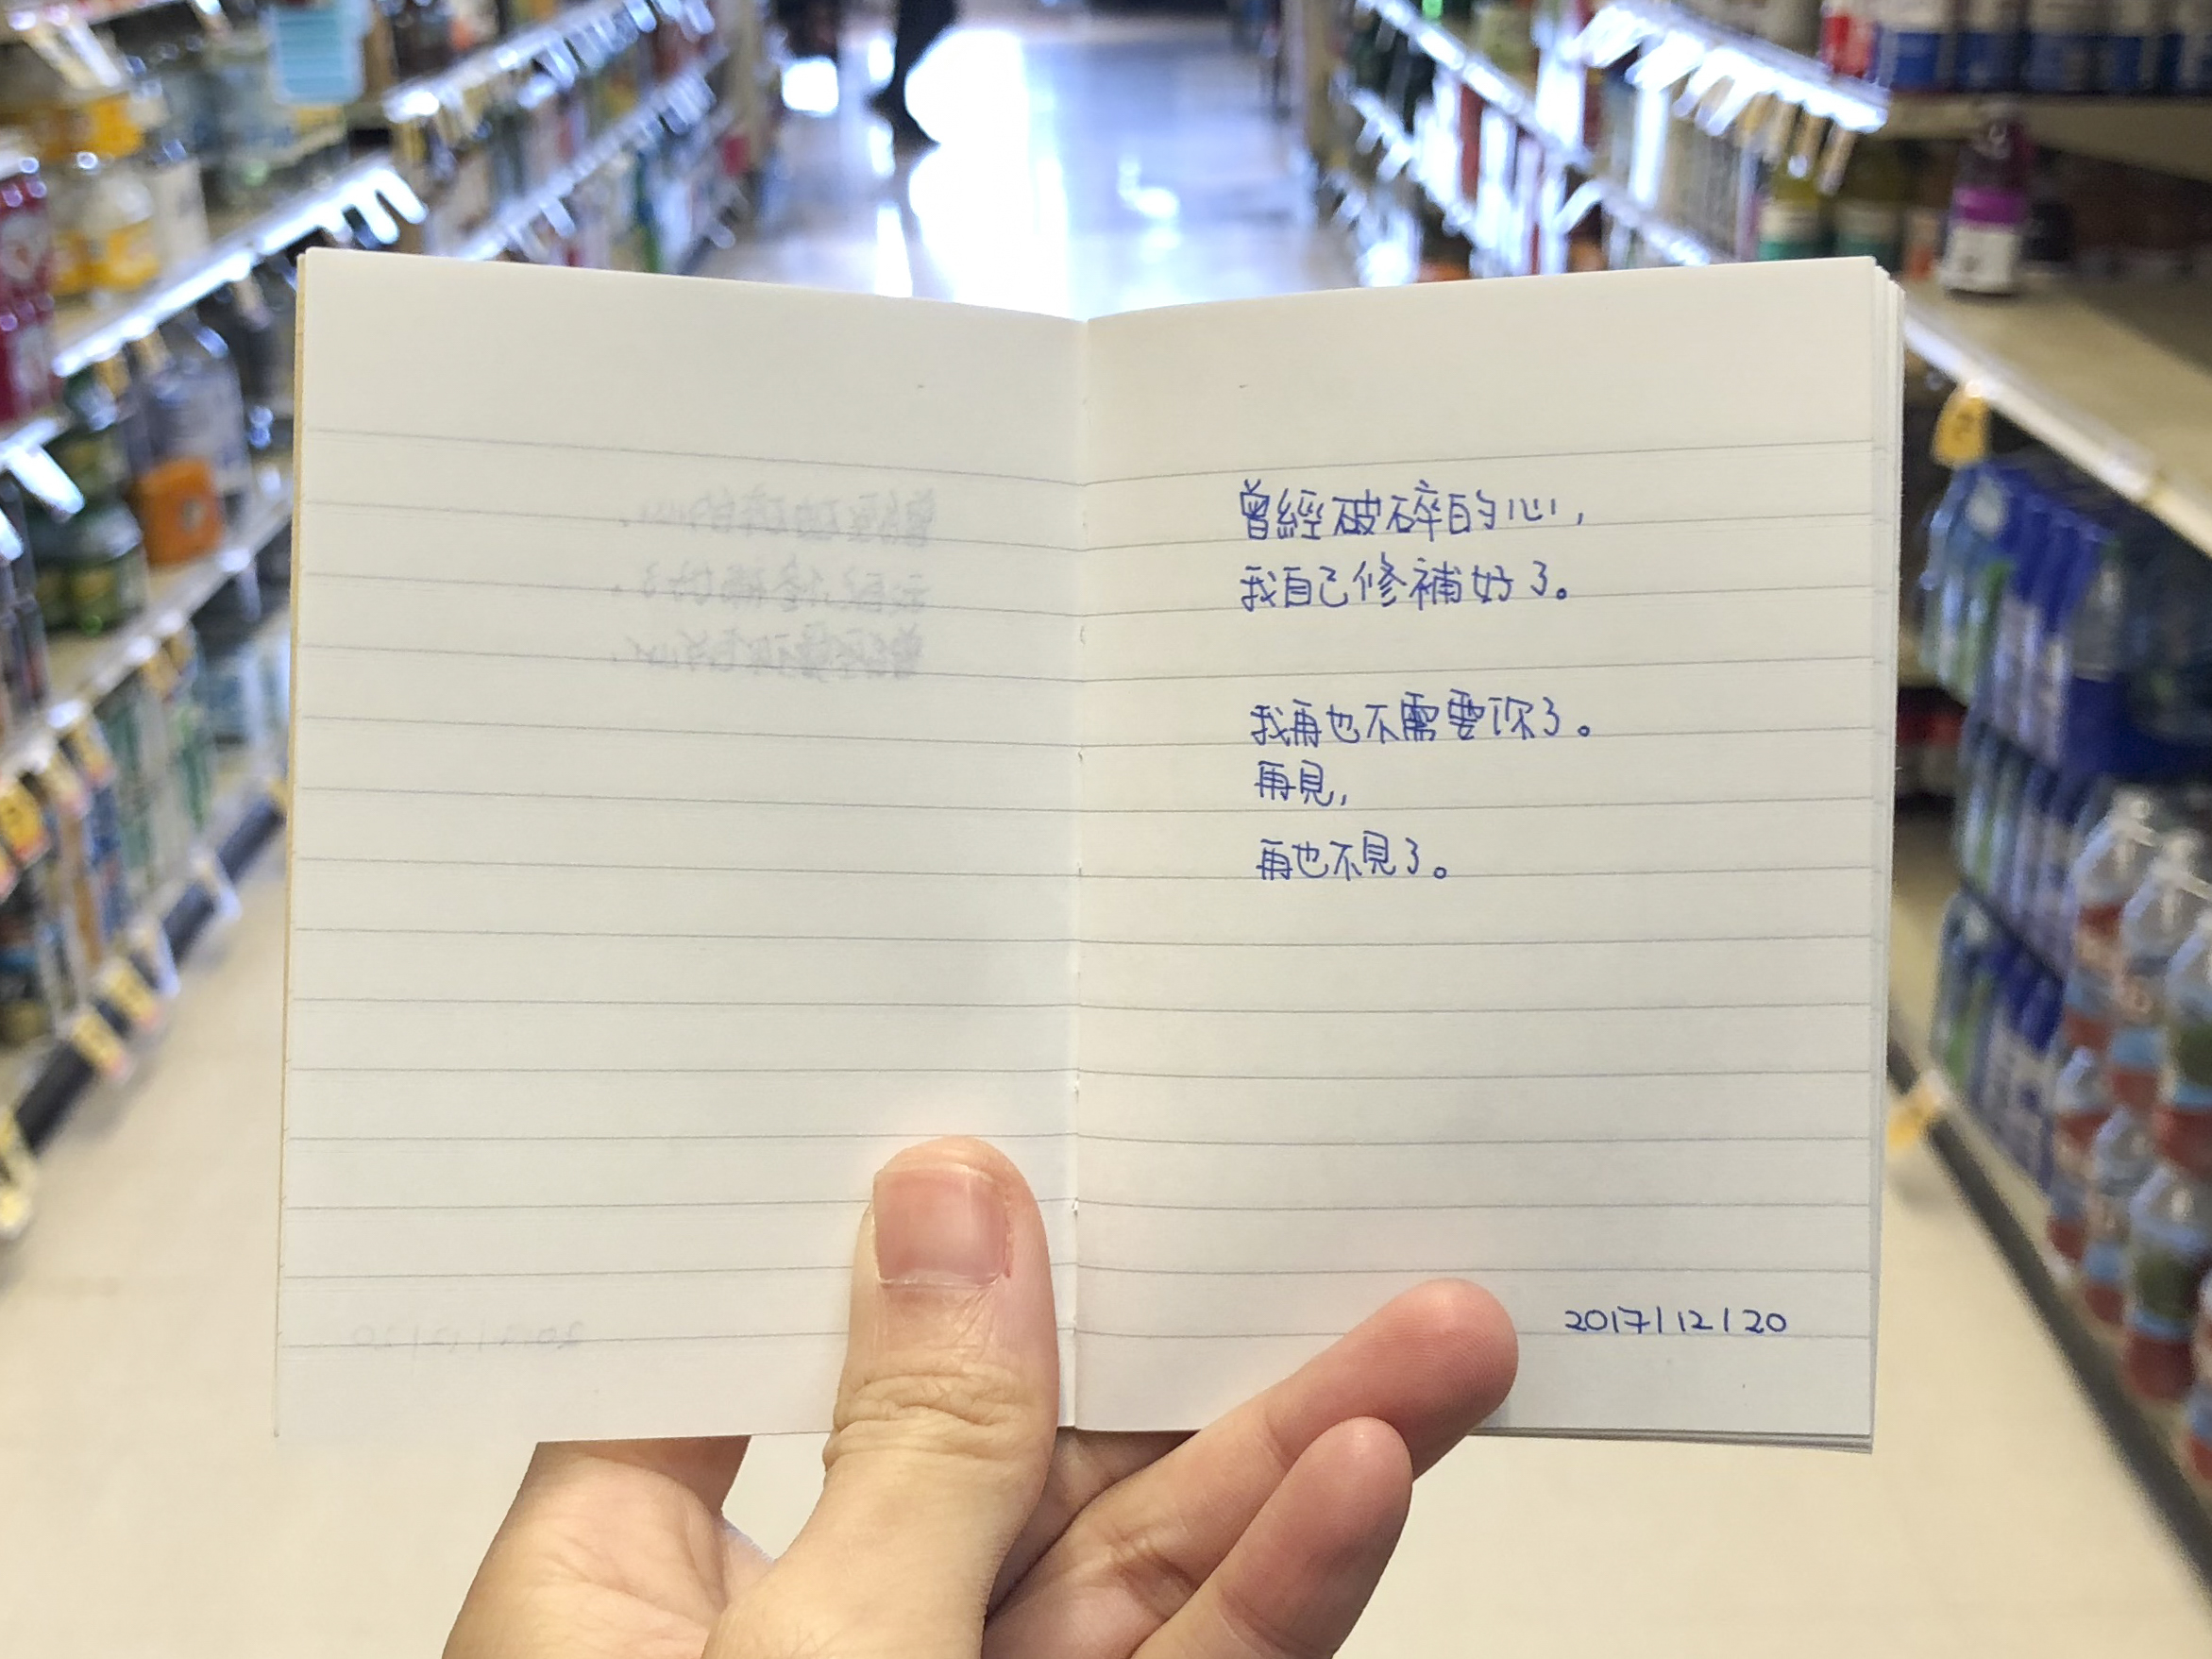 曾經破碎的心,
我自己修補好了。
我再也不需要你了。
再見,
再也不見了。
2017/12/20